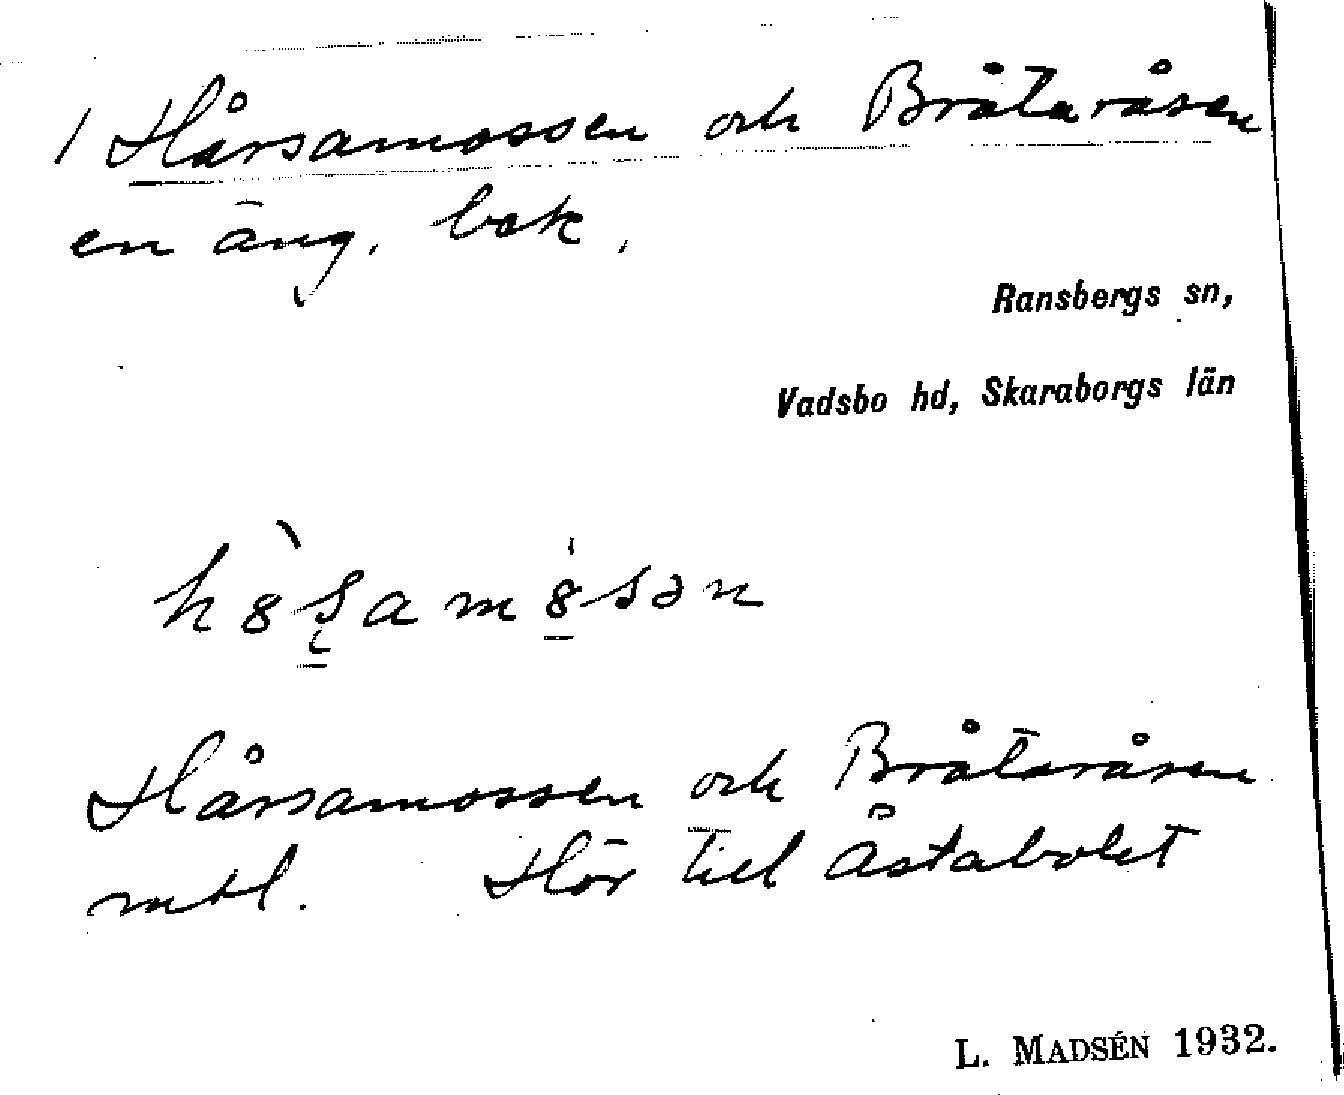 1 Hårsamossen och Bråtaråsen
en äng. bek.
Ransbergs sn,
Vadsbo hd, Skaraborgs län
Hårsamossen och Bråtaråsen
mtl. Hör till Åstabolet
L. MADSÉN 1932.